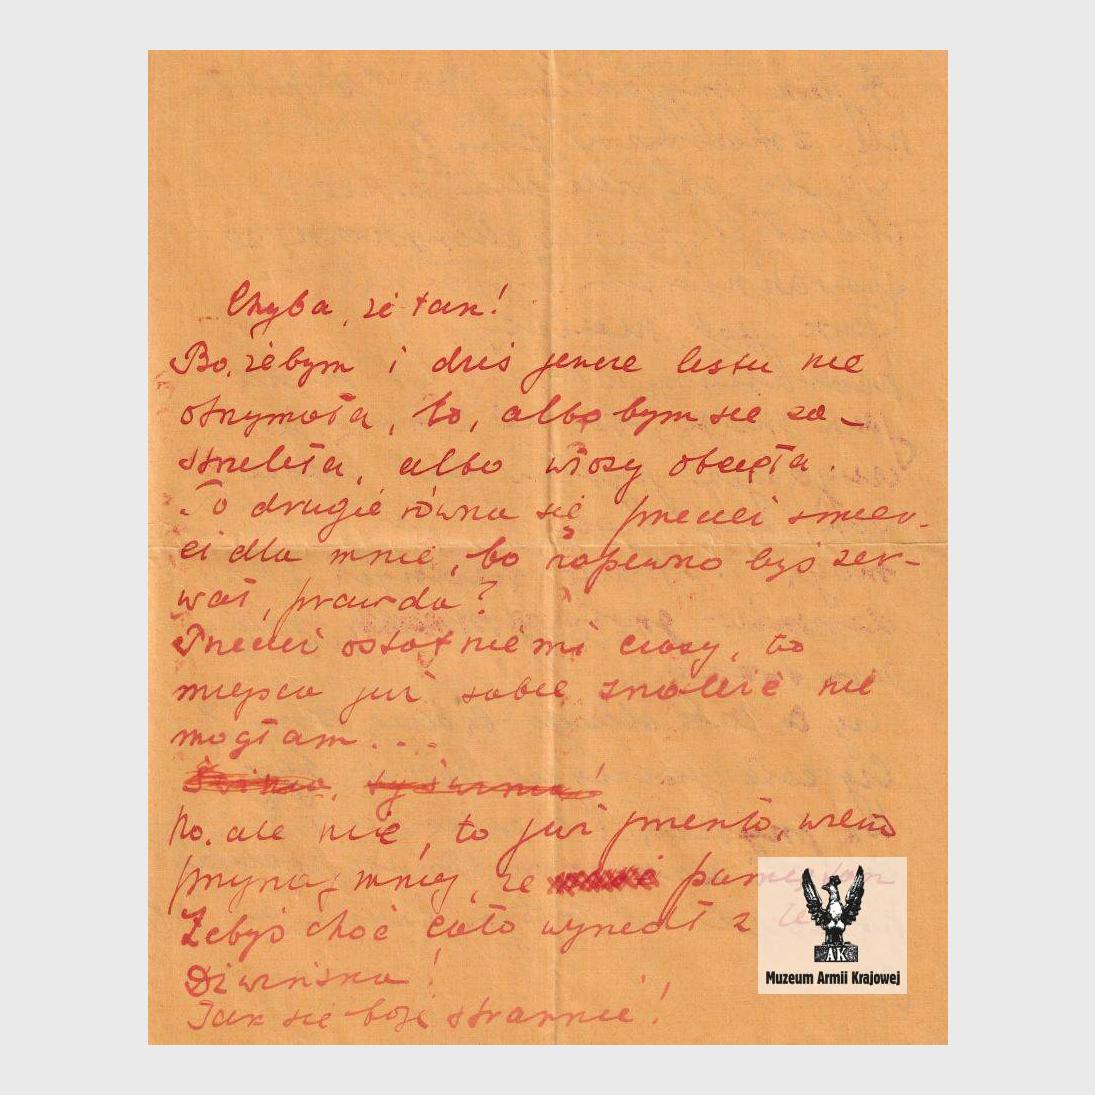 Chyba, że tak!
Bo, żebym i dziś jeszcze listu nie
otrzymała, to, albo bym się za-
strzeliła, albo włosy obcięła.
To drugie równa się przecież śmier-
ci dla mnie, bo napewno byś zer-
wał, prawda?
Przecież ostatniemi czasy, to
miejsca już sobie znaleźć nie
mogłam...
No, ale nie, to już przeszło, wiem
przynajmniej, że
Żebyś choć cało wyszedł z
Jak się boję strasznie!
AK
Muzeum Armii Krajowej